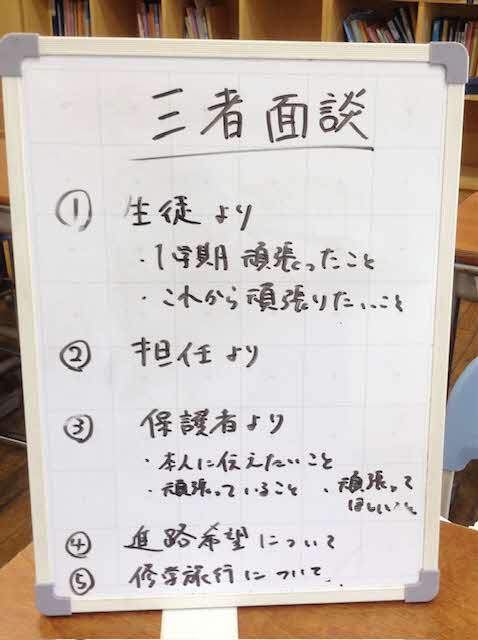 三者面談
① 生徒より
・1学期 頑張ったこと
・これから頑張りたいこと
② 担任より
③ 保護者より
・本人に伝えたいこと
・頑張っていること ・頑張って
ほしいこと
④ 進路希望について
⑤ 修学旅行について